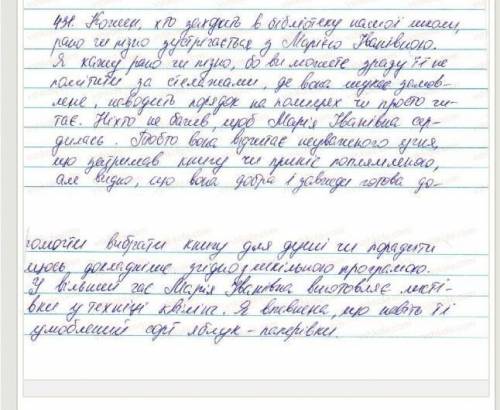 431. Кожен, хто заходить в бібліотеку нашої школи,
рано чи пізно зустрічається з Марією Іванівною.
Я кажу рано чи пізно, бо ви можете зразу її не
помітити за стелажами, де вона шукає замов-
лене, наводить порядок на полицях чи просто чи-
тає. Ніхто не бачив, щоб Марія Іванівна сер-
дилась. Тобто вона відчитає неуважного учня,
що затримав книгу чи приніс поплямленою,
але видно, що вона добра і завжди готова до-
помогти вибрати книгу для душі чи порадити
щось докладніше згідно з шкільною програмою.
У вільний час Марія Іванівна виготовляє листі-
вки у техніці квілінг. Я впевнена, що навіть її
улюблений сорт яблук - паперівки.